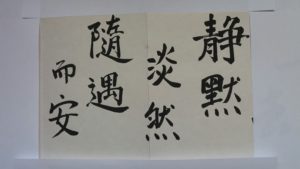 静默
淡然
隨遇
而安